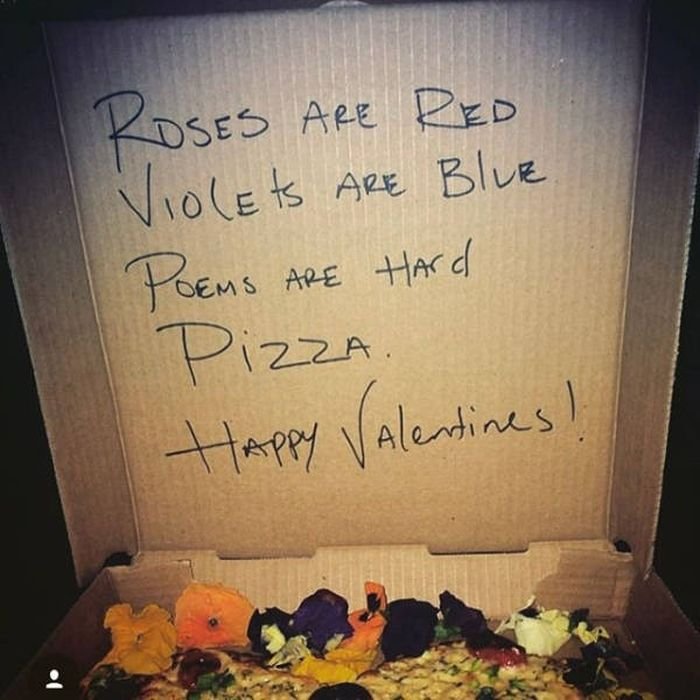 Roses are Red
Violets are Blue
Poems are Hard
Pizza.
Happy Valentines!